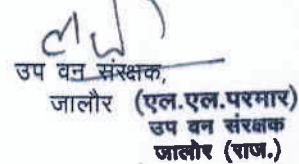 उप वन संरक्षक,
जालौर (एल.एल.परमार)
उप वन संरक्षक
जालोर (राज.)